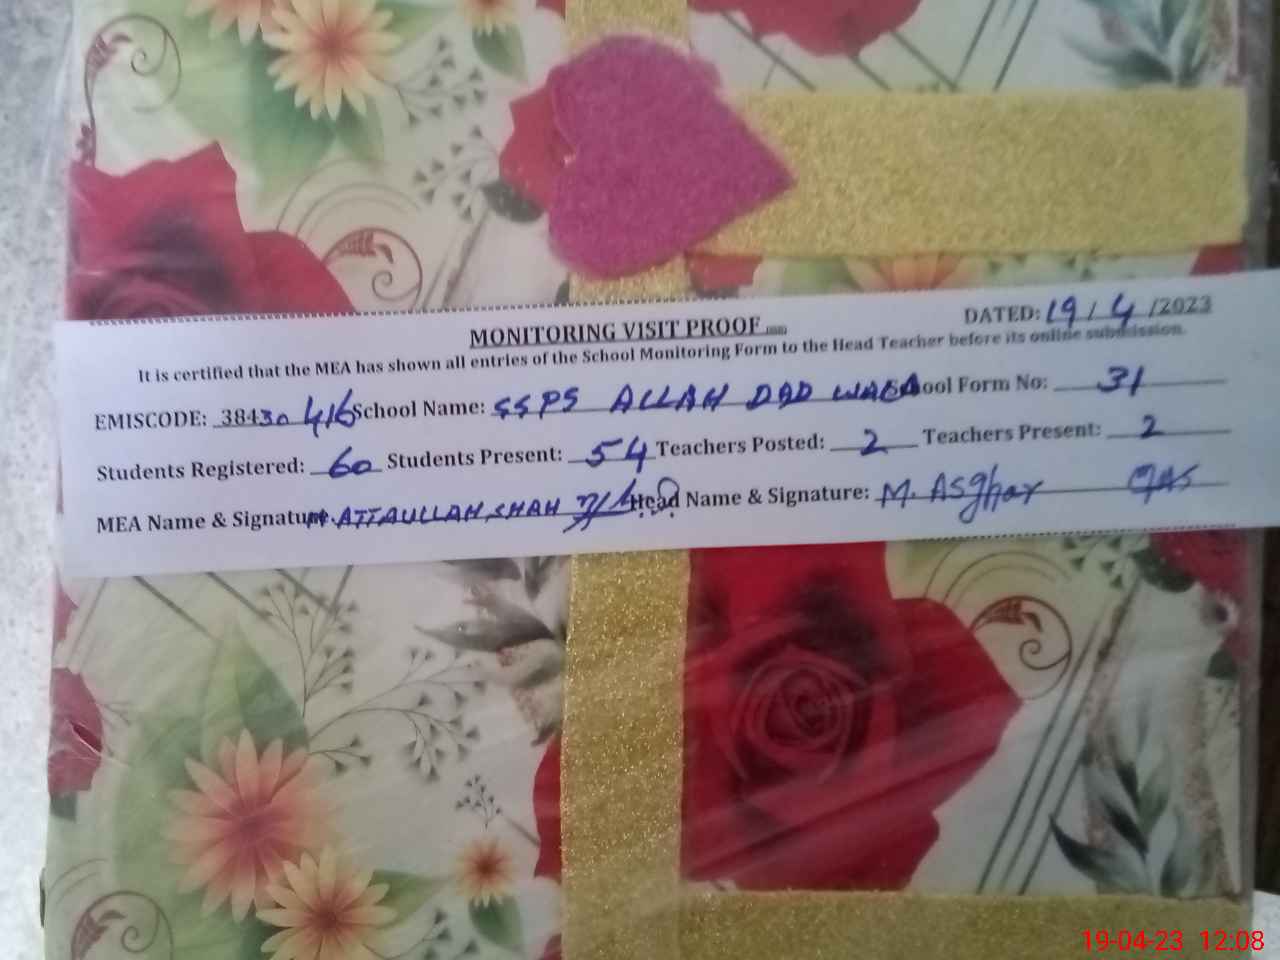 DATED: 19/4/2023
MONITORING VISIT PROOF
It is certified that the MEA has shown all entries of the School Monitoring Form to the Head Teacher before its online submission.
EMISCODE: 38430416 School Name: SSPS ALLAH DAD WALA School Form No: 31
Students Registered: 60 Students Present: 54 Teachers Posted: 2 Teachers Present: 2
MEA Name & Signature: M. ATTAULLAH SHAH Head Name & Signature: M. Asghar
19-04-23 12:08